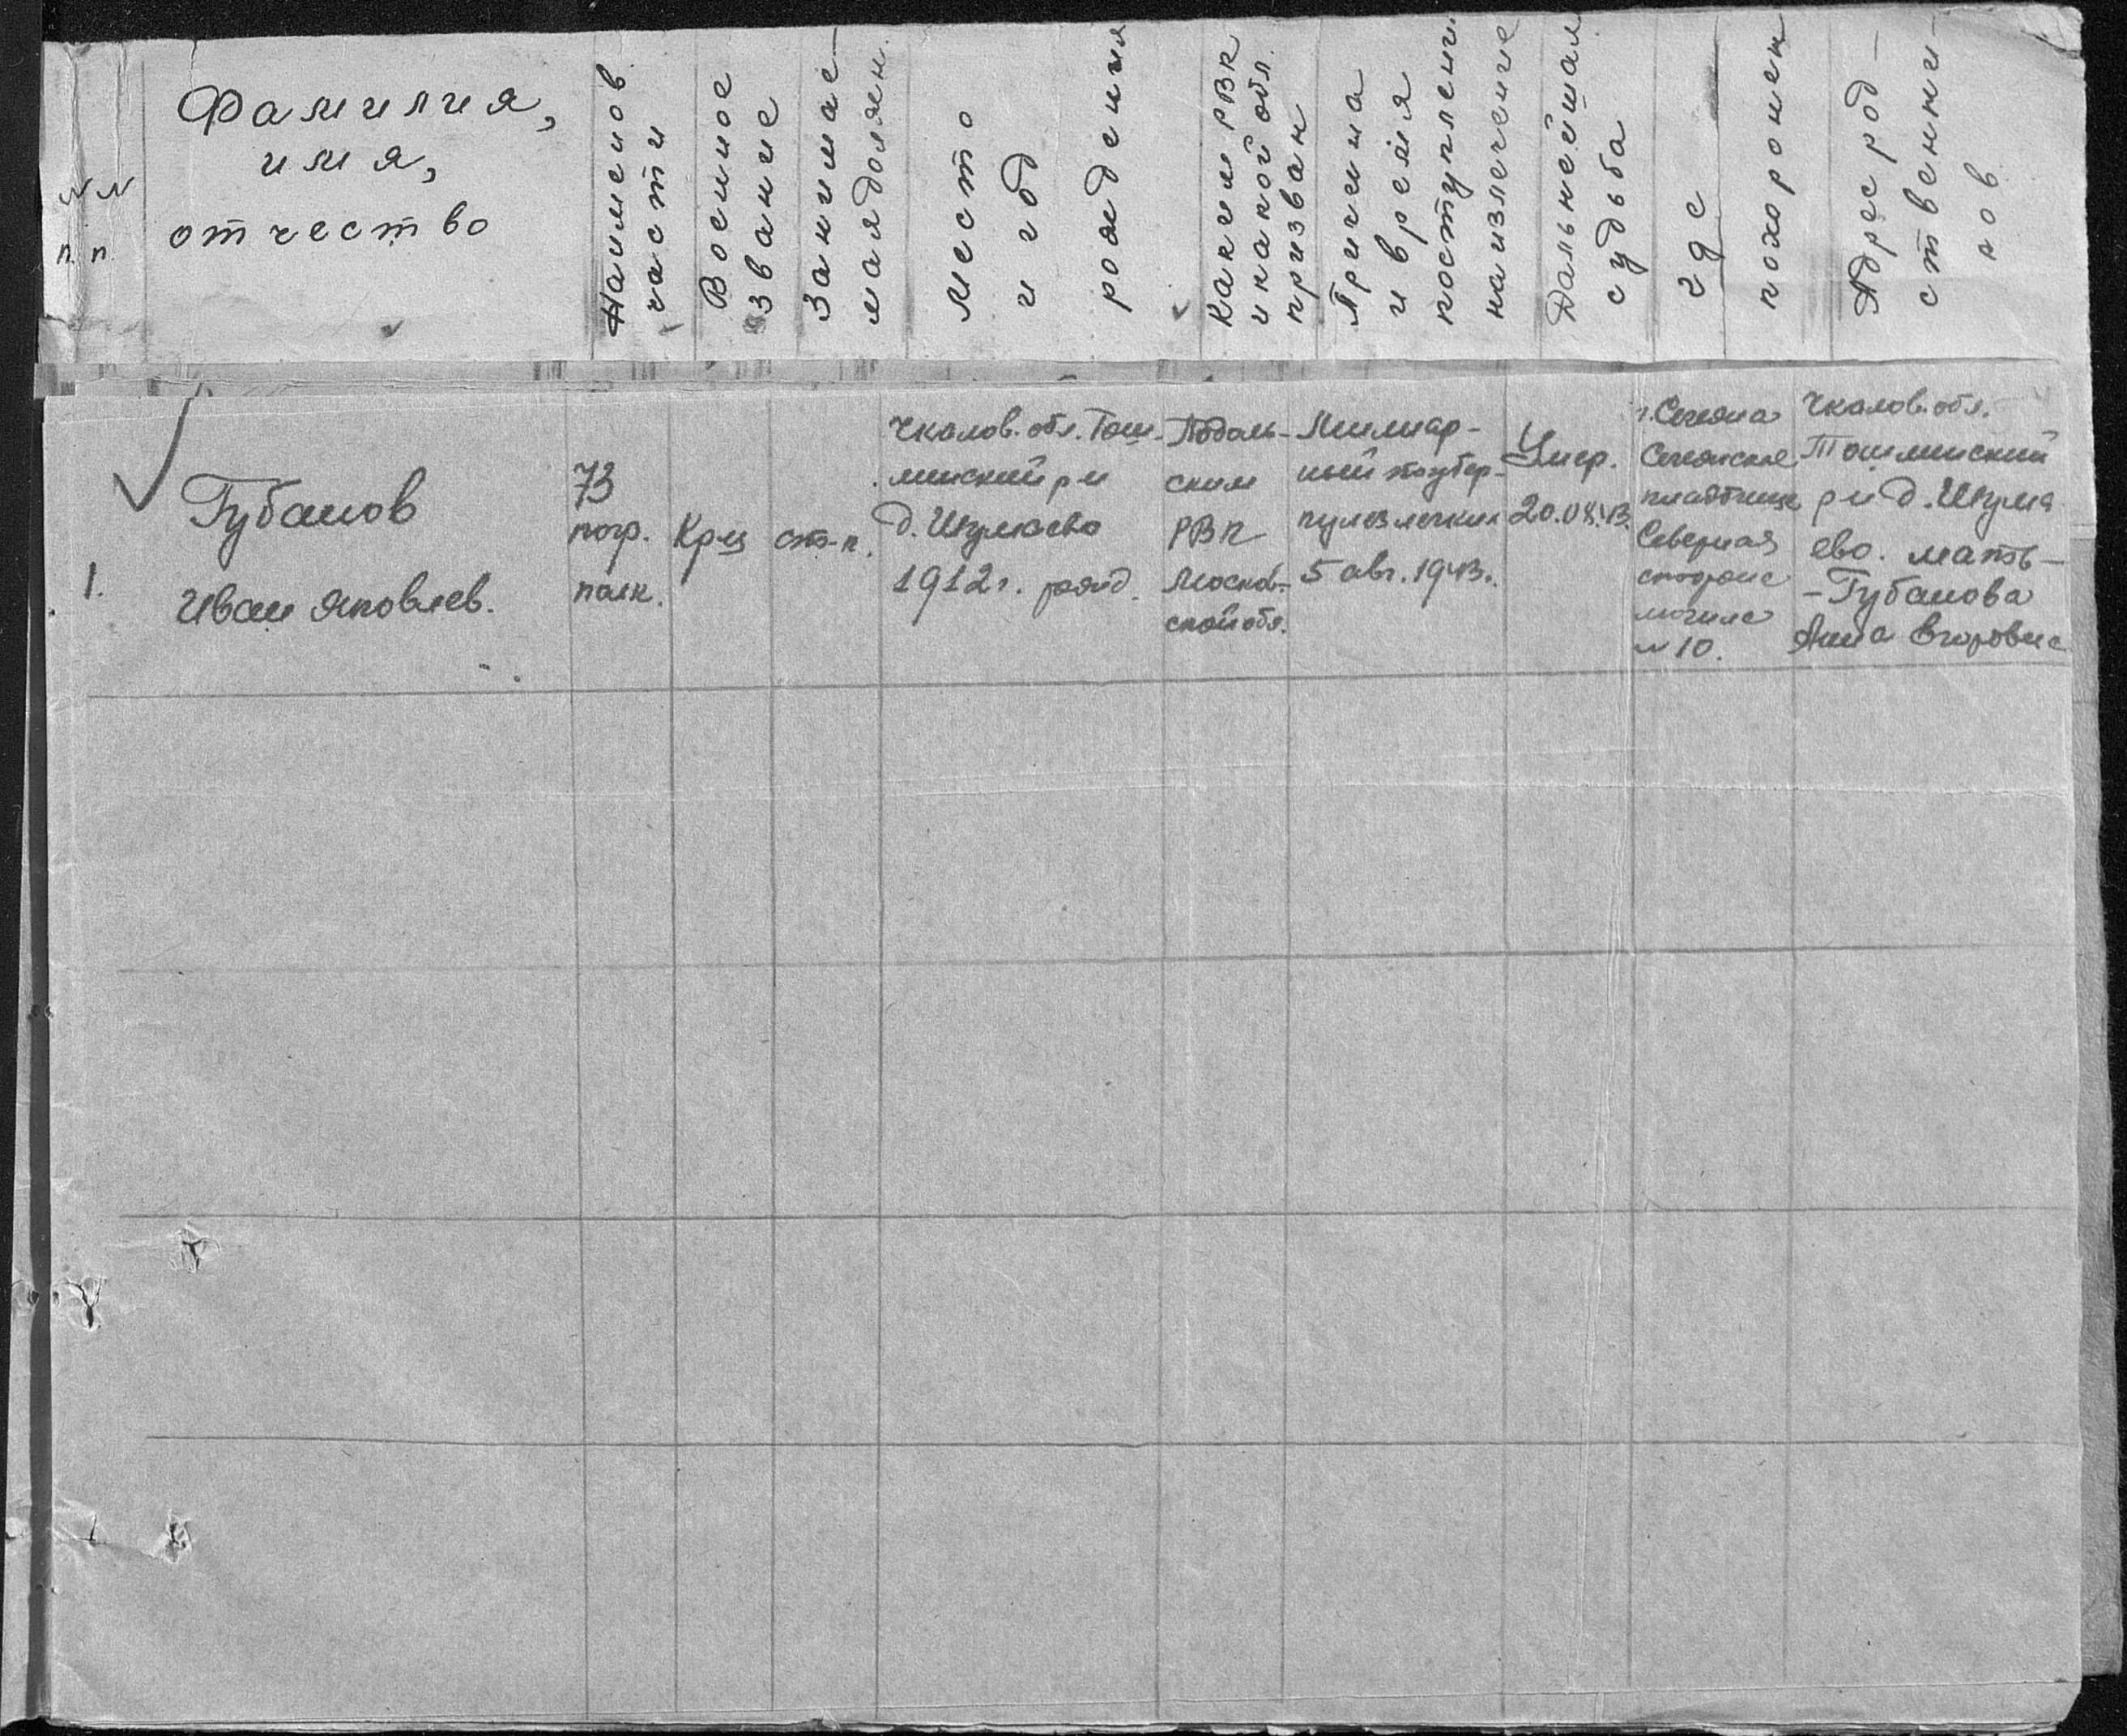 NN
п.п.
Фамилия,
имя,
отчество
Наименов.
части
Военное
звание
Занимае-
мая должн.
Место
и год
рождения
Каким РВК
и какой обл.
призван
Причина
и время
поступлени
на излечение
Дальнейшая
судьба
где
похоронен
Адрес род-
ственни-
ков
1.
Губанов
Иван Яковлев.
73
погр.
полк.
Кр-ц
стр-к.
Чкалов. обл. Тош-
минский р-н
д. Шумаево
1912 г. рожд.
Подоль-
ским
РВК
Москов-
ской обл.
Милиар-
ный тубер-
кулез легких
5 авг. 1943.
Умер.
20.08.43.
г. Сегежа
Сегежское
кладбище
Северная
стороне
могила
N 10.
Чкалов. обл.
Тошминский
р-н д. Шума
ево. мать-
-Губанова
Анна Егоровна